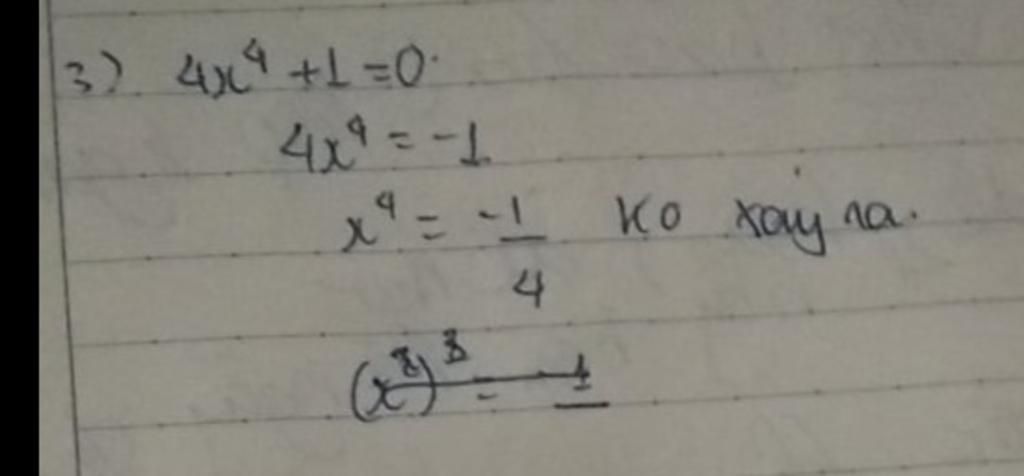 3) 4x⁴ + 1 = 0
4x⁴ = -1
x⁴ = -1/4 Ko xảy ra.